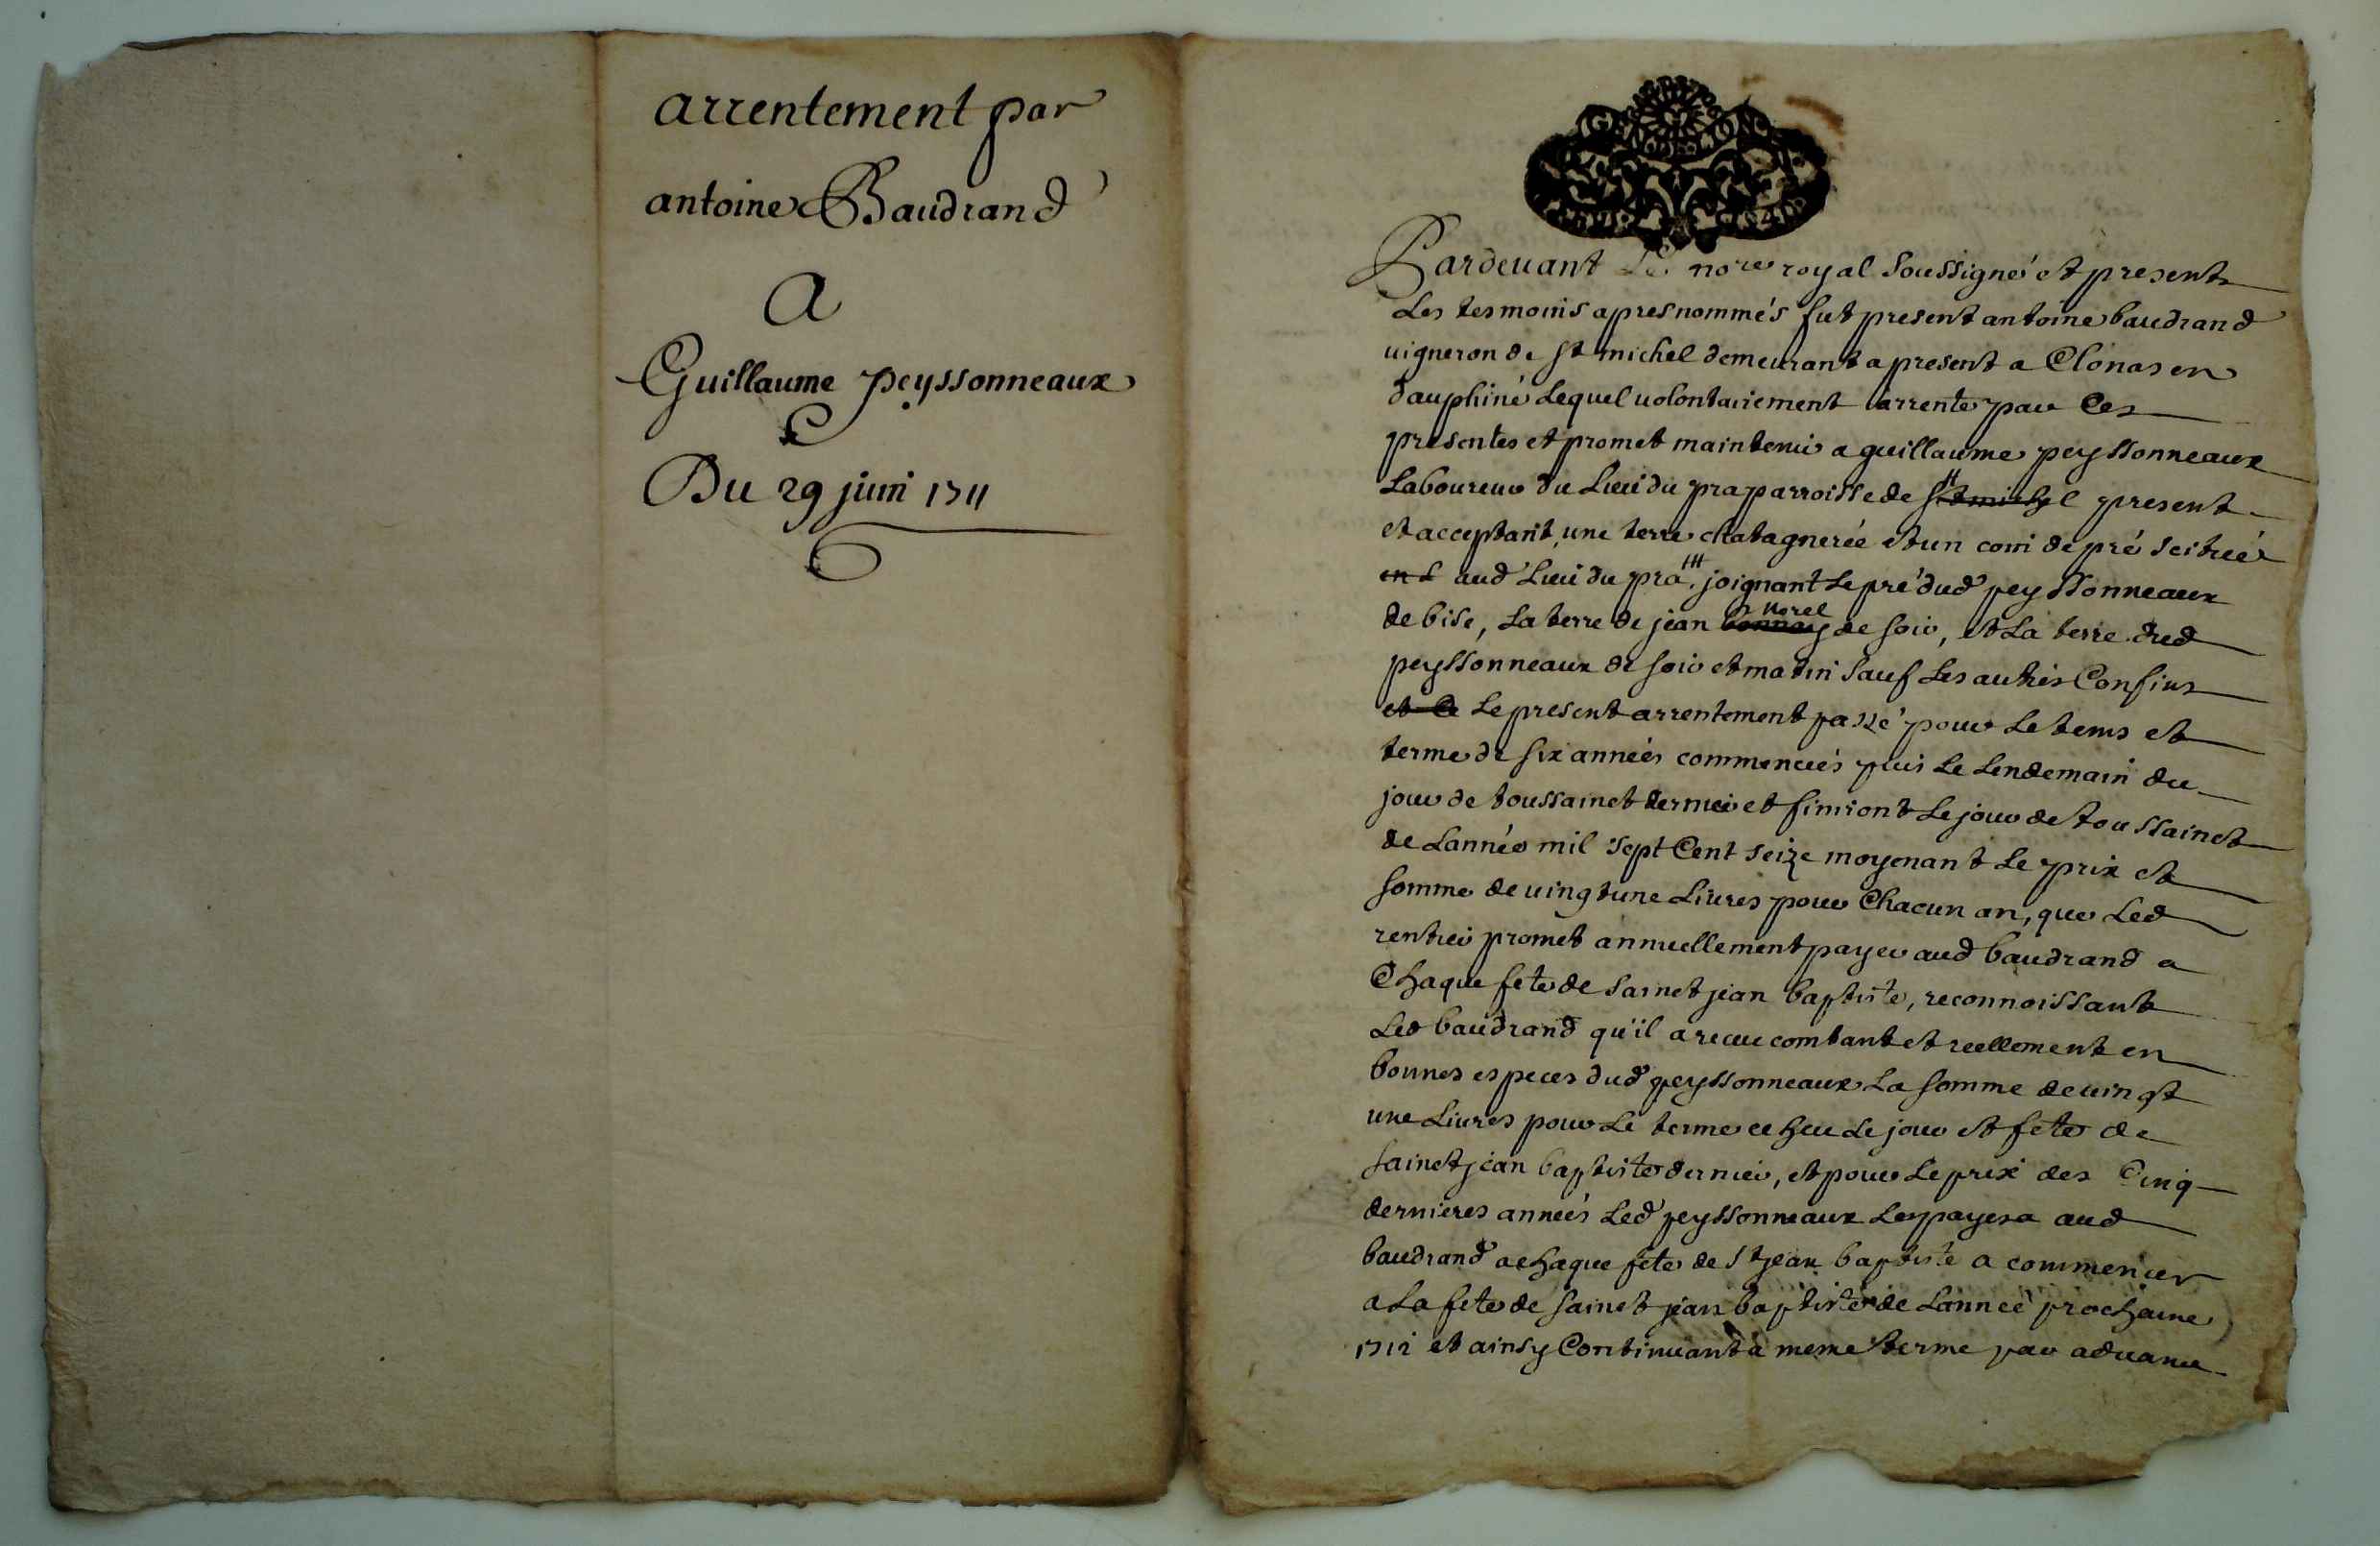 arrentement par
antoine Baudrand
A
Guillaume peyssonneaux
Du 29 juin 1711
Pardevant Le no.re royal soussigné et present
Les tesmoins apres nommés fut present antoine baudrand
vigneron de st michel demeurant a present a Clonas en
dauphiné Lequel volontairement arrente par Ces
presentes et promet maintenir a guillaume peyssonneaux
Laboureur du Lieu du pra parroisse de st michel present
et acceptant, une terre chatagnerée et un coin de pré scitué
en L aud Lieu du pra, joignant Le pré dud peyssonneaux
de bise, La terre de jean bonnay morel de soir, et La terre dud
peyssonneaux de soir et matin sauf Les autres Confins
et Ce Le present arrentement passé pour Le tems et
terme de six années commencées puis Le Lendemain du
jour de toussainct dernier et finiront Le jour de toussainct
de Lannée mil sept Cent seize moyenant Le prix et
somme de vingt une Livres pour Chacun an, que Led
rentier promet annuellement payer aud baudrand a
Chaque fete de sainct jean baptiste, reconnoissant
Led baudrand qu'il a receu comtant et reellement en
bonnes especes dud peyssonneaux La somme de vingt
une Livres pour Le terme echeu Le jour et fete de
sainct jean baptiste dernier, et pour Le prix des Cinq
dernieres années Led peyssonneaux Les payera aud
baudrand a chaque fete de st jean baptiste a commencer
a La fete de sainct jean baptiste de Lannée prochaine
1712 et ainsy Continuant a meme terme par advance